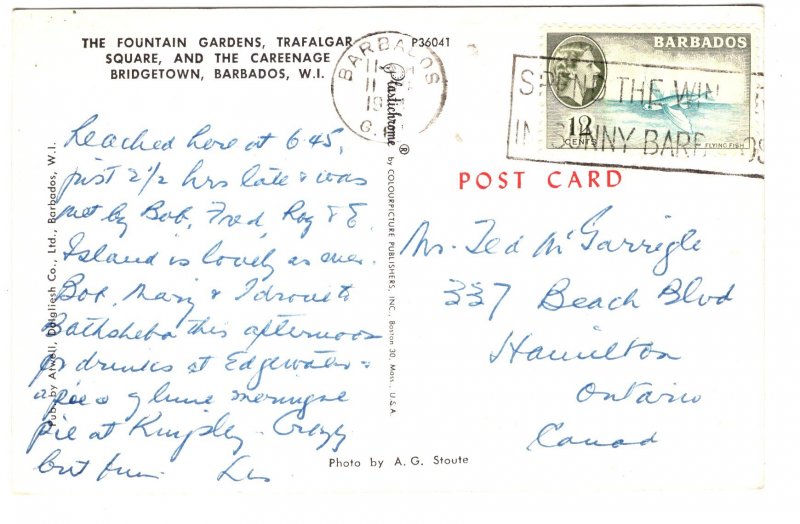 THE FOUNTAIN GARDENS, TRAFALGAR
SQUARE, AND THE CAREENAGE
BRIDGETOWN, BARBADOS, W.I.
P36041
BARBADOS
11
11
19
G.
BARBADOS
12
CENTS
FLYING FISH
SPEND THE WIN
IN SUNNY BARBADOS
Reached here at 6.45,
just 2 1/2 hrs late & was
met by Bob, Fred, Roy & E.
Island is lovely as ever.
Bob, Mary & I drove to
Bathsheba this afternoon
for drinks at Edgewater &
a piece of lime meringue
pie at Kingsley - Crazy
but fun. Les
Pub. by Atwell, Dalgliesh Co., Ltd., Barbados, W.I.
Plastichrome ® by COLOURPICTURE PUBLISHERS, INC., Boston 30, Mass., U.S.A.
POST CARD
Mr. Ted McGarrigle
337 Beach Blvd
Hamilton
Ontario
Canad
Photo by A. G. Stoute